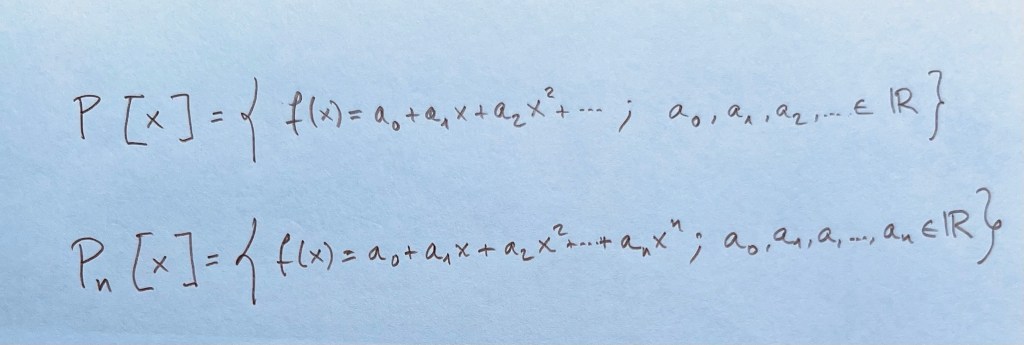 P [x] = { f(x) = a₀ + a₁x + a₂x² + ... ; a₀, a₁, a₂, ... ∈ ℝ }
Pₙ [x] = { f(x) = a₀ + a₁x + a₂x² + ... + aₙxⁿ ; a₀, a₁, a, ..., aₙ ∈ ℝ }